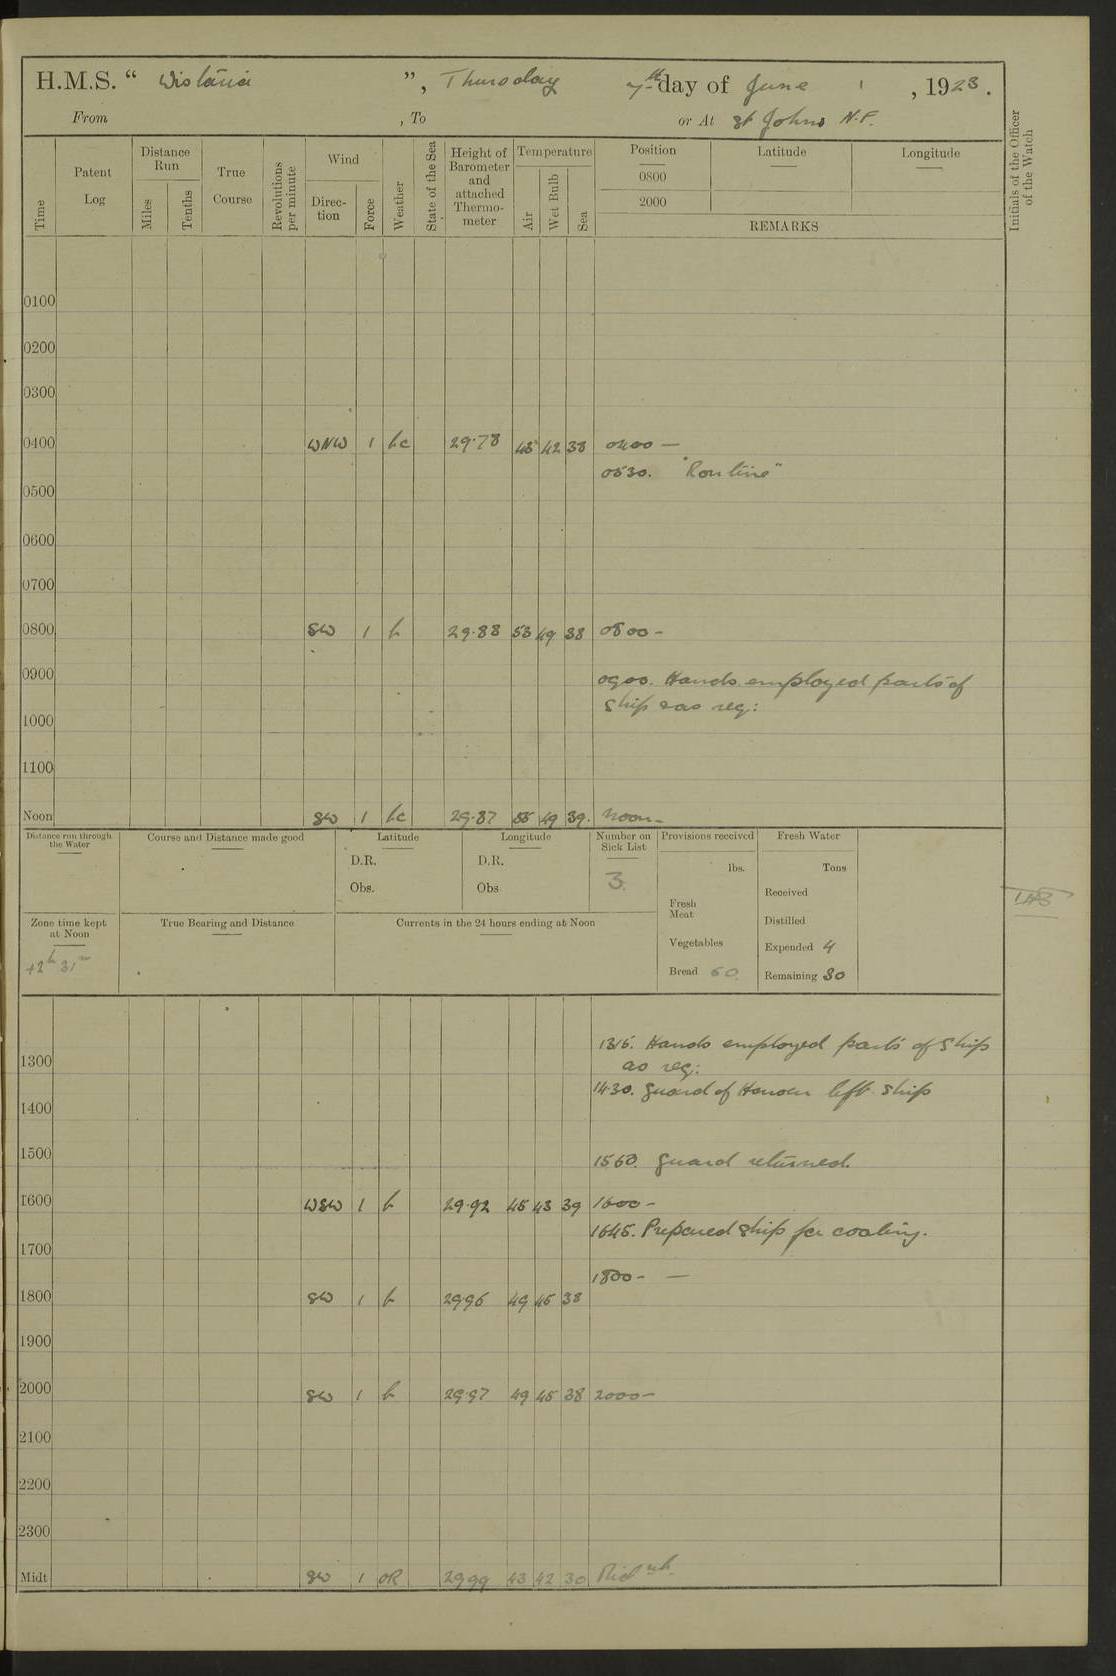 H.M.S. “ Wistaria ”, Thursday 7th day of June , 1923.
From , To or At St Johns N.F.
Time
Patent Log
Distance Run
Miles
Tenths
True Course
Revolutions per minute
Wind
Direction
Force
Weather
State of the Sea
Height of Barometer and attached Thermometer
Temperature
Air
Wet Bulb
Sea
Position Latitude Longitude
0800
2000
REMARKS
Initials of the Officer of the Watch
0100
0200
0300
0400 WNW 1 bc 29.78 45 42 38 0400 —
0530. "Routine"
0500
0600
0700
0800 SW 1 b 29.88 53 49 38 0800 -
0900 0900. Hands employed parts of
ship &as req:
1000
1100
Noon SW 1 bc 29.87 55 49 39. Noon -
Distance run through the Water
Course and Distance made good
Latitude
D.R.
Obs.
Longitude
D.R.
Obs
Number on Sick List
3.
Provisions received
lbs.
Fresh Meat
Vegetables
Bread 60
Fresh Water
Tons
Received
Distilled
Expended 4
Remaining 30
Zone time kept at Noon
+2h 31m
True Bearing and Distance
Currents in the 24 hours ending at Noon
1300 1315. Hands employed parts of ship
as req:
1430. Guard of Honour left ship
1400
1500 1550. Guard returned.
1600 WSW 1 b 29.92 45 43 39 1600 -
1645. Prepared ship for coaling.
1700
1800 - —
1800 SW 1 b 29.96 49 45 38
1900
2000 SW 1 b 29.97 49 45 38 2000 -
2100
2200
2300
Midt SW 1 OR 29.99 43 42 30 Midnt.